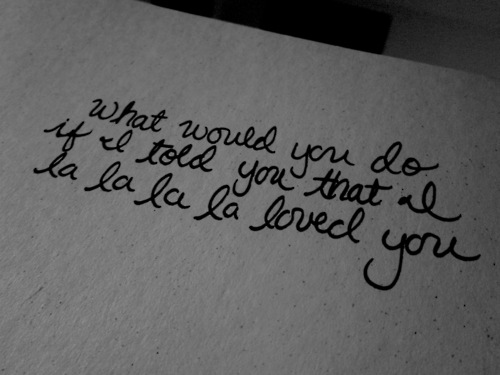 what would you do
if I told you that I
la la la la loved you